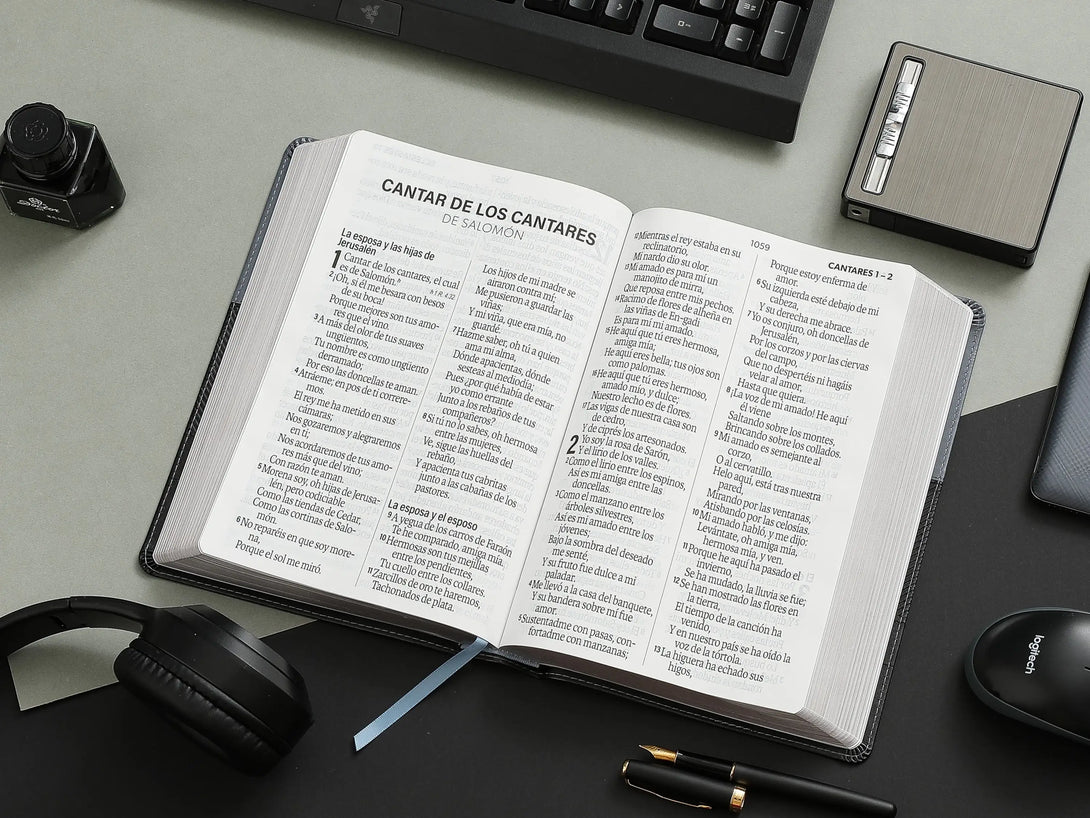 CANTAR DE LOS CANTARES
DE SALOMÓN
La esposa y las hijas de
Jerusalén
1 Cantar de los cantares, el cual
es de Salomón.ª
a 1 R. 4.32
2 ¡Oh, si él me besara con besos
de su boca!
Porque mejores son tus amo-
res que el vino.
3 A más del olor de tus suaves
ungüentos,
Tu nombre es como ungüento
derramado;
Por eso las doncellas te aman.
4 Atráeme; en pos de ti correre-
mos.
El rey me ha metido en sus
cámaras;
Nos gozaremos y alegraremos
en ti;
Nos acordaremos de tus amo-
res más que del vino;
Con razón te aman.
5 Morena soy, oh hijas de Jerusa-
lén, pero codiciable
Como las tiendas de Cedar,
Como las cortinas de Salo-
món.
6 No reparéis en que soy more-
na,
Porque el sol me miró.
Los hijos de mi madre se
airaron contra mí;
Me pusieron a guardar las
viñas;
Y mi viña, que era mía, no
guardé.
7 Hazme saber, oh tú a quien
ama mi alma,
Dónde apacientas, dónde
sesteas al mediodía;
Pues ¿por qué había de estar
yo como errante
Junto a los rebaños de tus
compañeros?
8 Si tú no lo sabes, oh hermosa
entre las mujeres,
Ve, sigue las huellas del
rebaño,
Y apacienta tus cabritas
junto a las cabañas de los
pastores.
La esposa y el esposo
9 A yegua de los carros de Faraón
Te he comparado, amiga mía.
10 Hermosas son tus mejillas
entre los pendientes,
Tu cuello entre los collares.
11 Zarcillos de oro te haremos,
Tachonados de plata.
1059
CANTARES 1–2
12 Mientras el rey estaba en su
reclinatorio,
Mi nardo dio su olor.
13 Mi amado es para mí un
manojito de mirra,
Que reposa entre mis pechos.
14 Racimo de flores de alheña en
las viñas de En-gadi
Es para mí mi amado.
15 He aquí que tú eres hermosa,
amiga mía;
He aquí eres bella; tus ojos son
como palomas.
16 He aquí que tú eres hermoso,
amado mío, y dulce;
Nuestro lecho es de flores.
17 Las vigas de nuestra casa son
de cedro,
Y de ciprés los artesonados.
2 Yo soy la rosa de Sarón,
Y el lirio de los valles.
2 Como el lirio entre los espinos,
Así es mi amiga entre las
doncellas.
3 Como el manzano entre los
árboles silvestres,
Así es mi amado entre los
jóvenes;
Bajo la sombra del deseado
me senté,
Y su fruto fue dulce a mi
paladar.
4 Me llevó a la casa del banquete,
Y su bandera sobre mí fue
amor.
5 Sustentadme con pasas, con-
fortadme con manzanas;
Porque estoy enferma de
amor.
6 Su izquierda esté debajo de mi
cabeza,
Y su derecha me abrace.
7 Yo os conjuro, oh doncellas de
Jerusalén,
Por los corzos y por las ciervas
del campo,
Que no despertéis ni hagáis
velar al amor,
Hasta que quiera.
8 ¡La voz de mi amado! He aquí
él viene
Saltando sobre los montes,
Brincando sobre los collados.
9 Mi amado es semejante al
corzo,
O al cervatillo.
Helo aquí, está tras nuestra
pared,
Mirando por las ventanas,
Atisbando por las celosías.
10 Mi amado habló, y me dijo:
Levántate, oh amiga mía,
hermosa mía, y ven.
11 Porque he aquí ha pasado el
invierno,
Se ha mudado, la lluvia se fue;
12 Se han mostrado las flores en
la tierra,
El tiempo de la canción ha
venido,
Y en nuestro país se ha oído la
voz de la tórtola.
13 La higuera ha echado sus
higos,
logitech